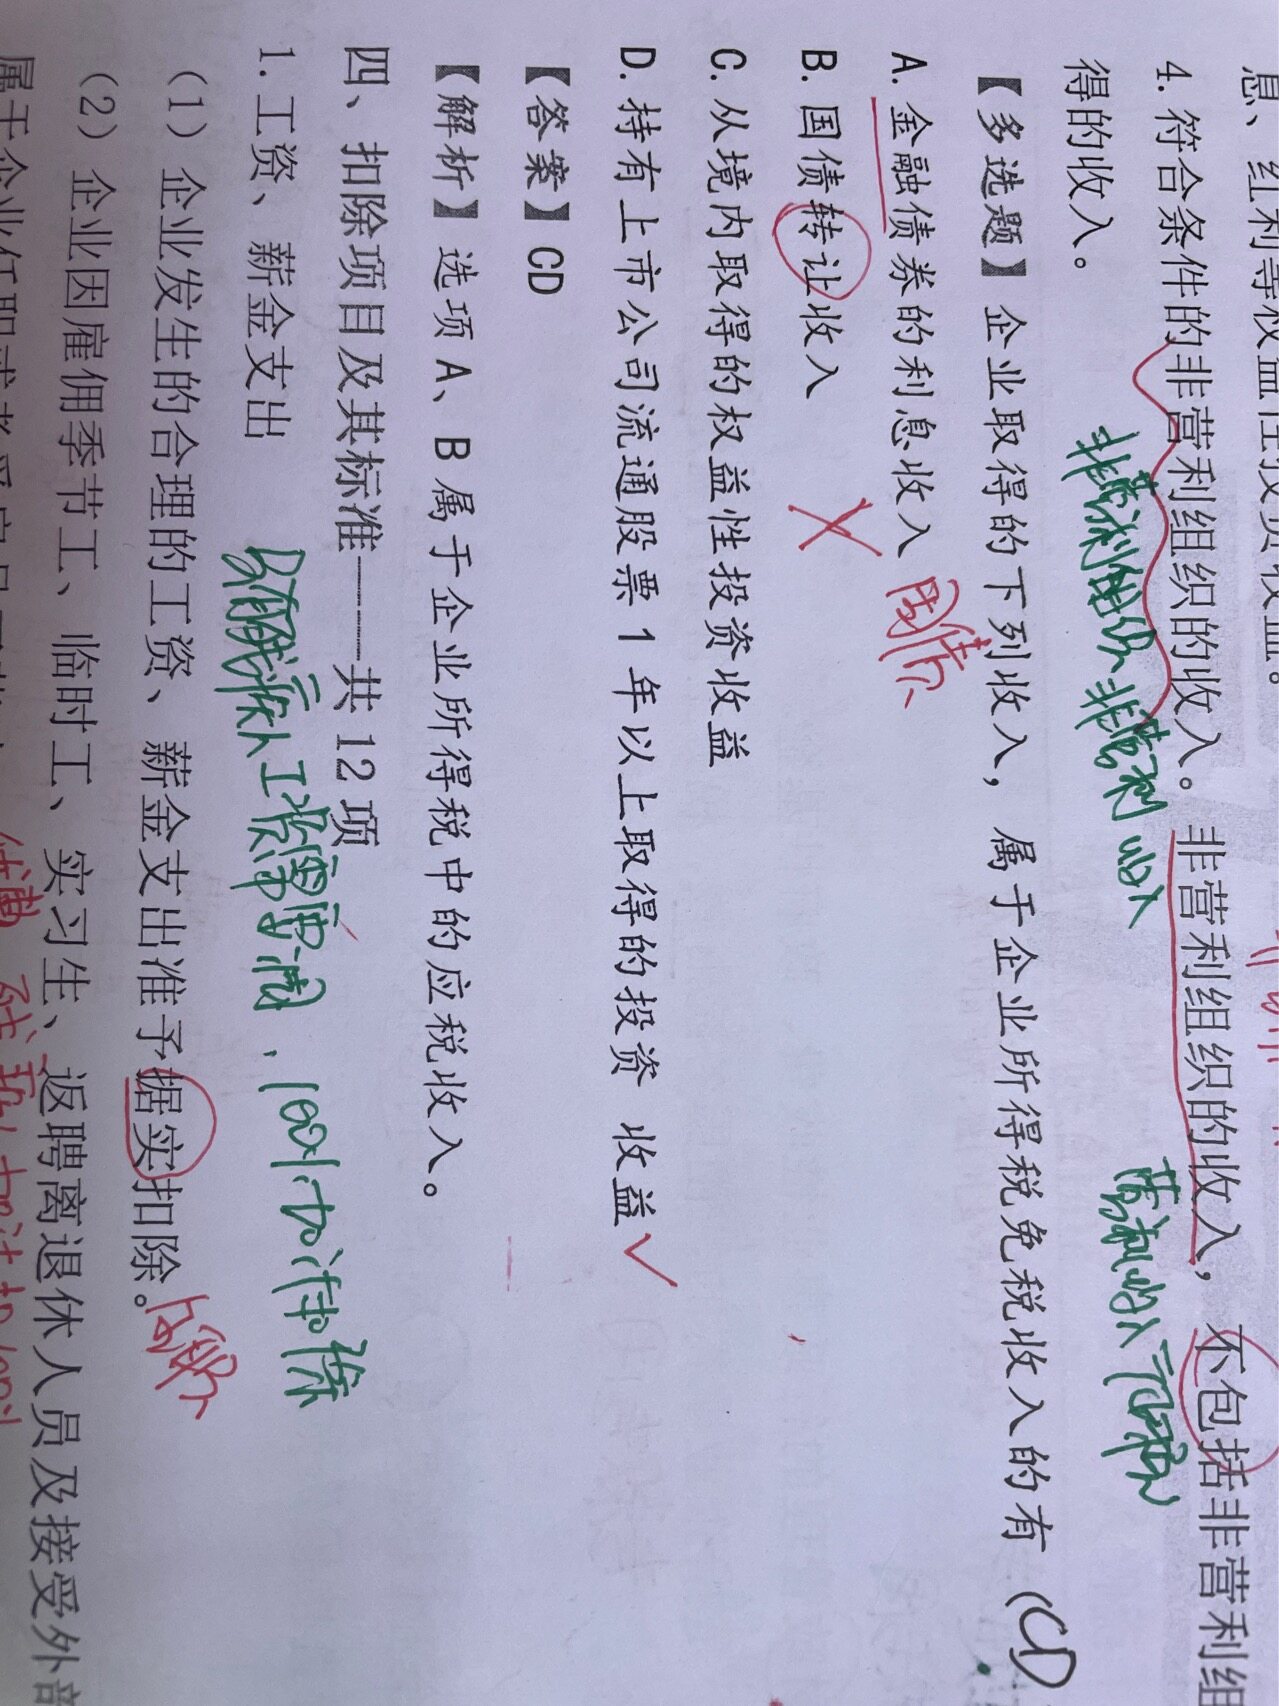 息、红利等权益性投资收益。
4. 符合条件的非营利组织的收入。非营利组织的收入，不包括非营利组
得的收入。
非营利组织 非营利 收入
营利收入
【多选题】企业取得的下列收入，属于企业所得税免税收入的有 (CD
A. 金融债券的利息收入 国债
B. 国债转让收入
C. 从境内取得的权益性投资收益
D. 持有上市公司流通股票 1 年以上取得的投资 收益 ✓
【答案】CD
【解析】选项 A、B 属于企业所得税中的应税收入。
四、扣除项目及其标准——共 12 项
1. 工资、薪金支出
残疾人工资 100%加计扣除
（1）企业发生的合理的工资、薪金支出准予据实扣除。
（2）企业因雇佣季节工、临时工、实习生、返聘离退休人员及接受外部